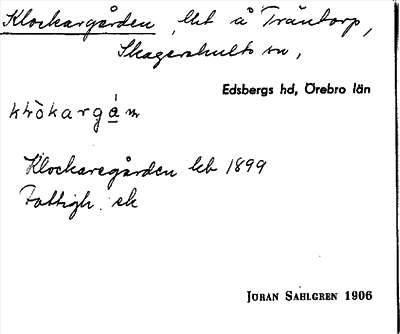 Klockargården, lht å Träntorp,
Skagershults sn,
Edsbergs hd, Örebro län
Klockaregården kb 1899
Fattigh. ek
JÖRAN SAHLGREN 1906